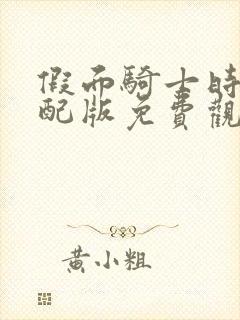 假面騎士時
配版免費觀
黃小粗